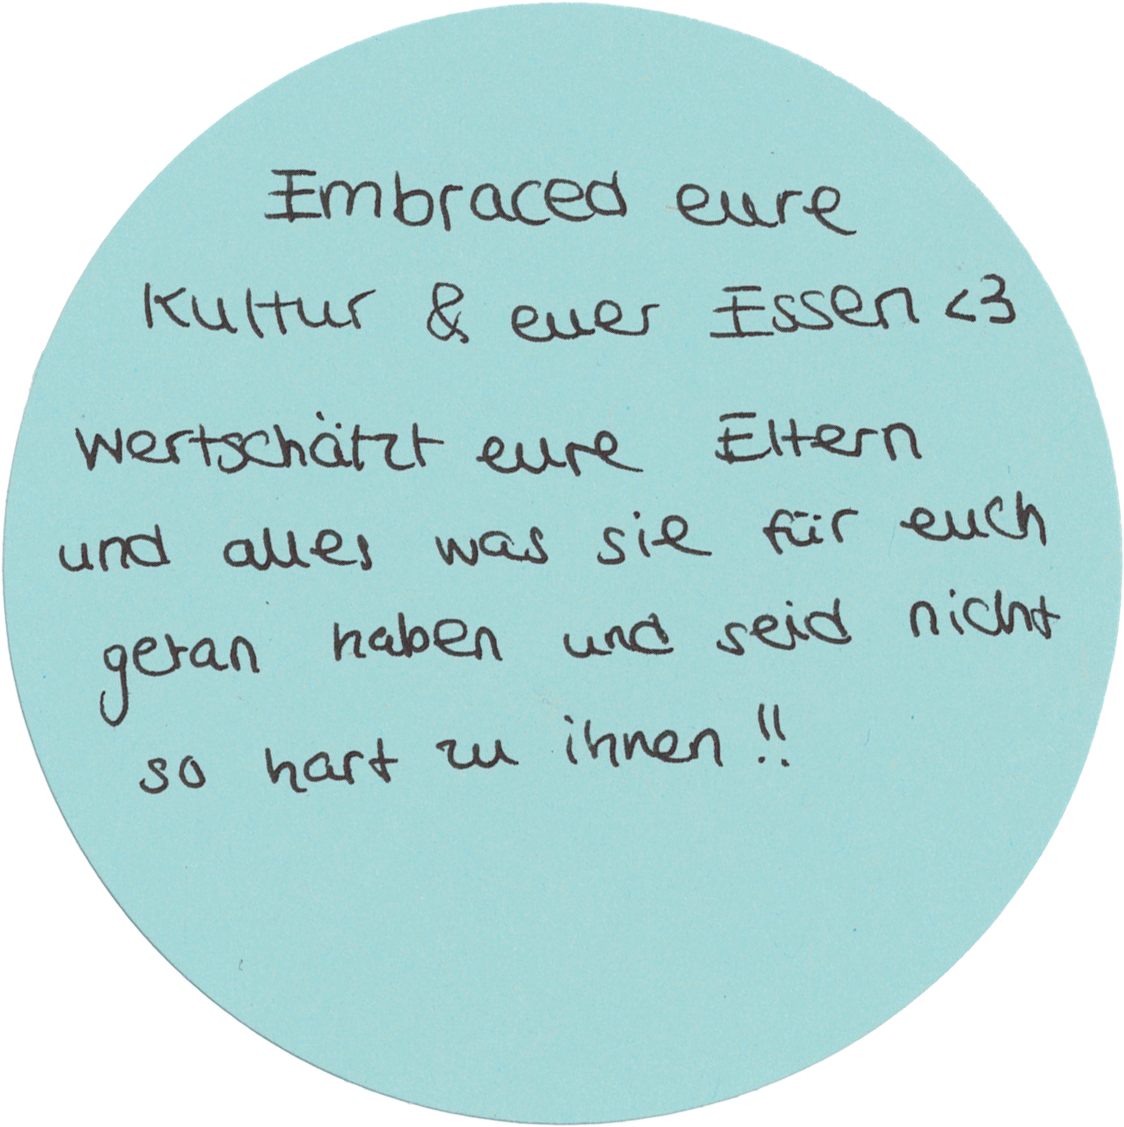 Embraced eure
Kultur & euer Essen <3
wertschätzt eure Eltern
und alles was sie für euch
getan haben und seid nicht
so hart zu ihnen !!